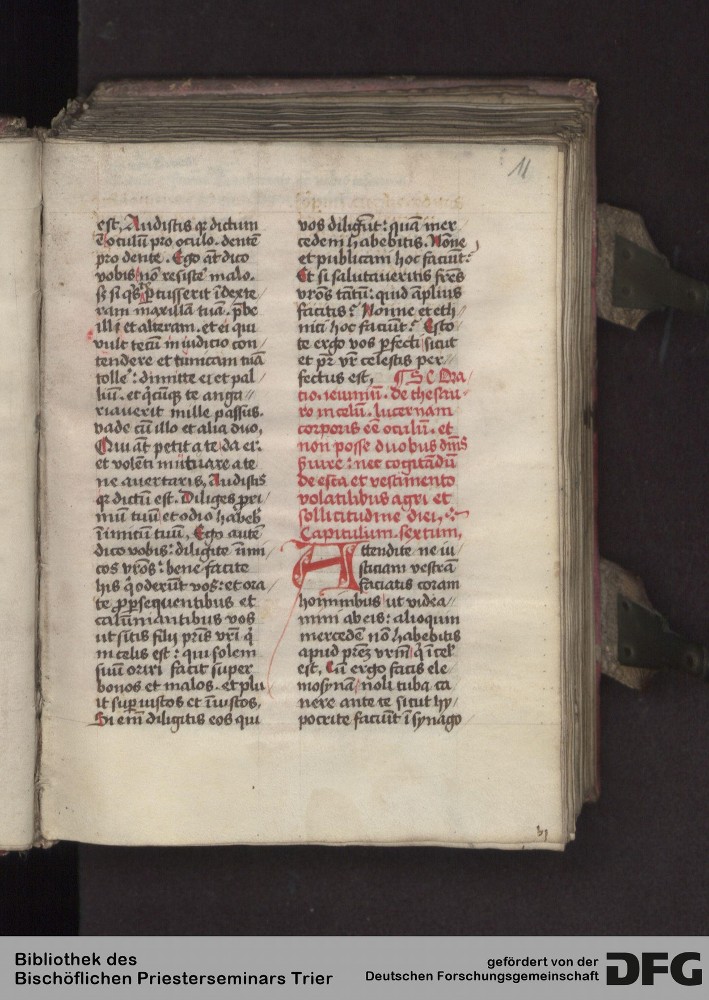 11
est, Audistis qꝛ dictum
ē oculū pro oculo. dentē
pro dente. Ego āt dico
vobis nō resiste malo.
sꝫ si q̇s ꝑcusserit ī dexte
ram maxillā tuā. p̄be
illi et alteram. et ei qui
vult tecū in iudicio con
tendere et tunicam tuā
tolle: dimitte ei et pal
liū. et q̄cūqꝫ te anga
riauerit mille passus.
vade cū illo et alia duo,
Qui āt petit a te da ei.
et volēti mutuare a te
ne auertaris, Audistis
qꝛ dictū est. Diliges pri
mū tuū et odio habeb
īimicū tuū, Ego autē
dico vobis: diligite īimi
cos vr̄os: bene facite
his q̇ oderūt vos: et ora
te ꝓ ꝑsequentibus et
calūniantibus vos
ut sitis filij pr̄is vr̄i q̇
in celis est: qui solem
suū oriri facit super
bonos et malos. et plu
it suꝑ iustos et īiustos,
Si em̄ diligitis eos qui
vos diligūt: quā mer
cedem habebitis. Nōne
et publicani hoc faciūt:
Et si salutaueritis fr̄es
vr̄os tātū: quid āplius
facitis: Nonne et eth
nici hoc faciūt: Esto
te ergo vos ꝑfecti sicut
et pr̄ vr̄ celestis per
fectus est, ¶ Sꝫ Ora
tio. ieiuniū. de thesau
ro in celū. lucernam
corporis eē oculū. et
non posse duobus dm̄s
ẜuire: nec cogitādū
de esca et vestimento
volatilibus agri et
sollicitudine diei,
Capitulum. sextum,
Attendite ne iu
sticiam vestrā
faciatis coram
hominibus ut videa
mini ab eis: alioquin
mercedē nō habebitis
apud prēꝫ vrm̄ q̇ ī cel
est, Cū ergo facis ele
mosynā, noli tuba ca
nere ante te sicut hy
pocrite faciūt ī synago
b1
Bibliothek des
Bischöflichen Priesterseminars Trier
gefördert von der
Deutschen Forschungsgemeinschaft
DFG